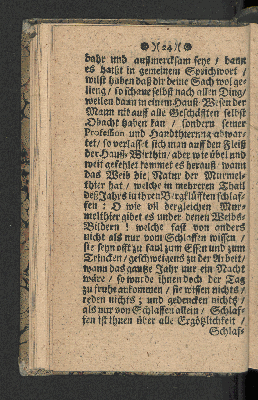 24
bahr und auffmercksam seye / dann
es haist in gemeinem Sprichwort /
wilst haben daß dir deine Sach wol ge-
ling / so schawe selbst nach allen Ding /
weilen dann in einem Hauß-Wesen der
Mann nit auff alle Geschäfften selbst
Obacht haben kan / sondern seiner
Profession und Handthierung abwar-
tet / so verlasset sich man auff den Fleiß
der Hauß-Wirthin / aber wie übel und
weit gefehlet kommet es herauß / wann
das Weib die Natur der Murmel-
thier hat / welche in mehreren Theil
deß Jahrs in ihren Bergklüfften schlaf-
fen : O wie vil dergleichen Mur-
melthier gibt es under denen Weibs-
Bildern ! welche fast von anders
nicht als nur vom Schlaffen wissen /
sie seyn offt zu faul zum Essen und zum
Trincken / geschweigens zu der Arbeit /
wann das gantze Jahr nur ein Nacht
wäre / so wurde ihnen doch der Tag
zu fruhe ankommen / sie wissen nichts /
reden nichts / und gedencken nichts /
als nur von Schlaffen allein / Schlaf-
fen ist ihnen über alle Ergötzlichkeit /
Schlaf-